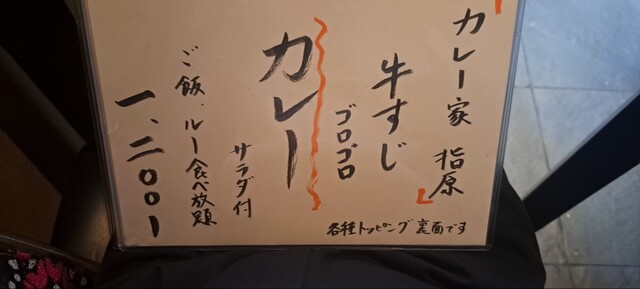 「カレー家 指原」
牛すじ
ゴロゴロ
カレー
サラダ付
ご飯、ルー食べ放題
一、二〇〇一
各種トッピング裏面です